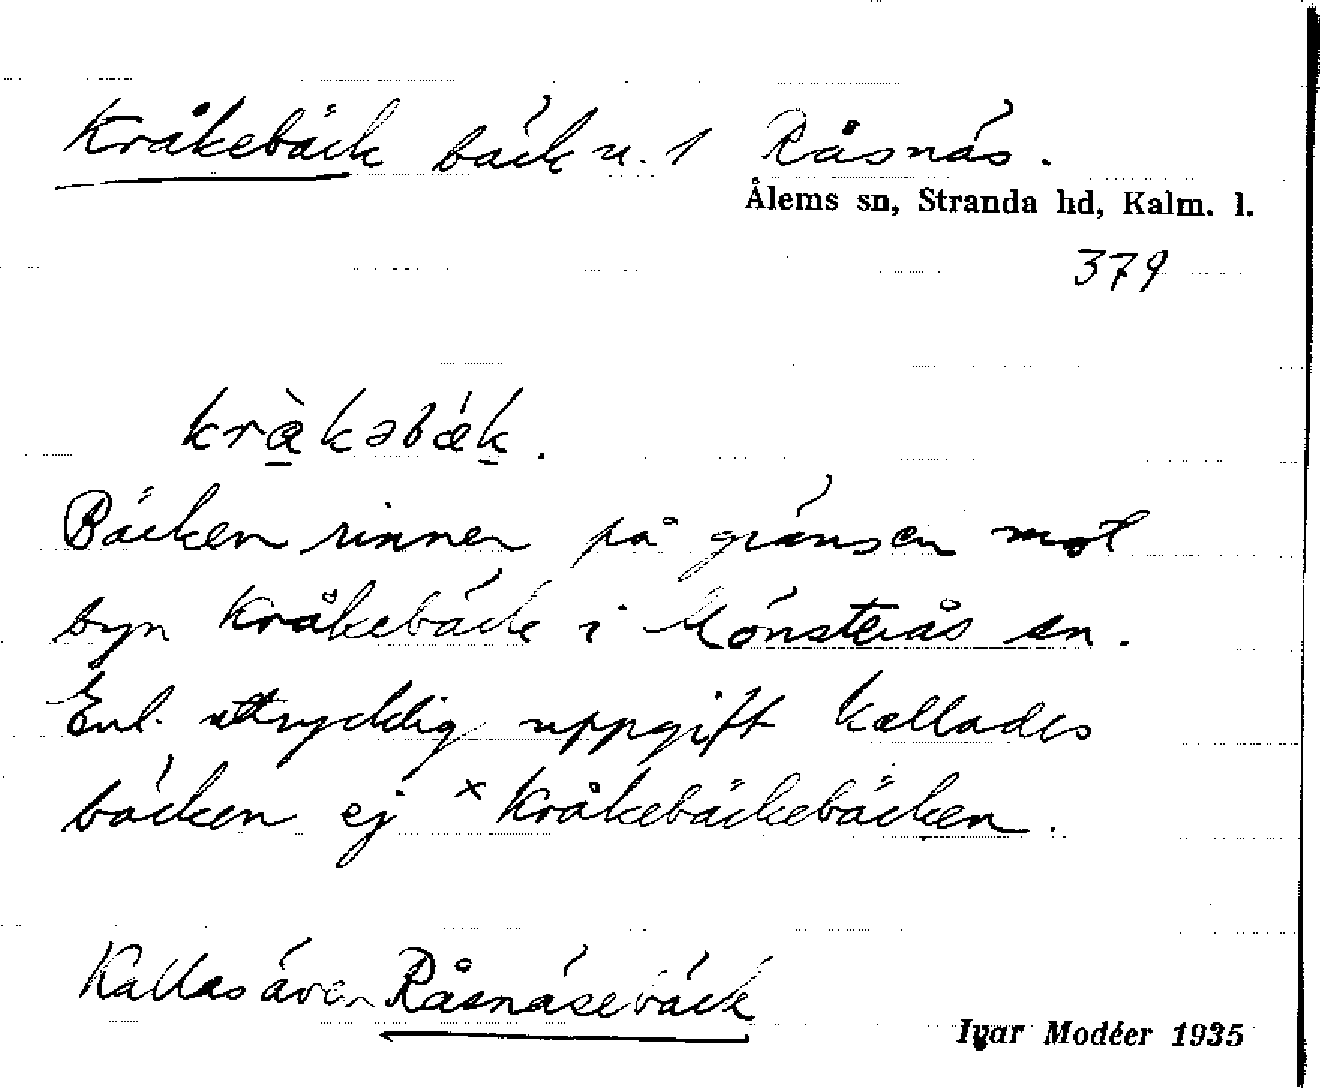 Kråkebäck bäck u. 1 Råsnäs.
Ålems sn, Stranda hd, Kalm. l.
379
kræ̀kəbǽk.
Bäcken rinner på gränsen mot
byn Kråkebäck i Mönsterås sn.
Enl. uttrycklig uppgift kallades
bäcken ej ×Kråkebäckebäcken.
Kallas även Råsnäsebäck
Ivar Modéer 1935